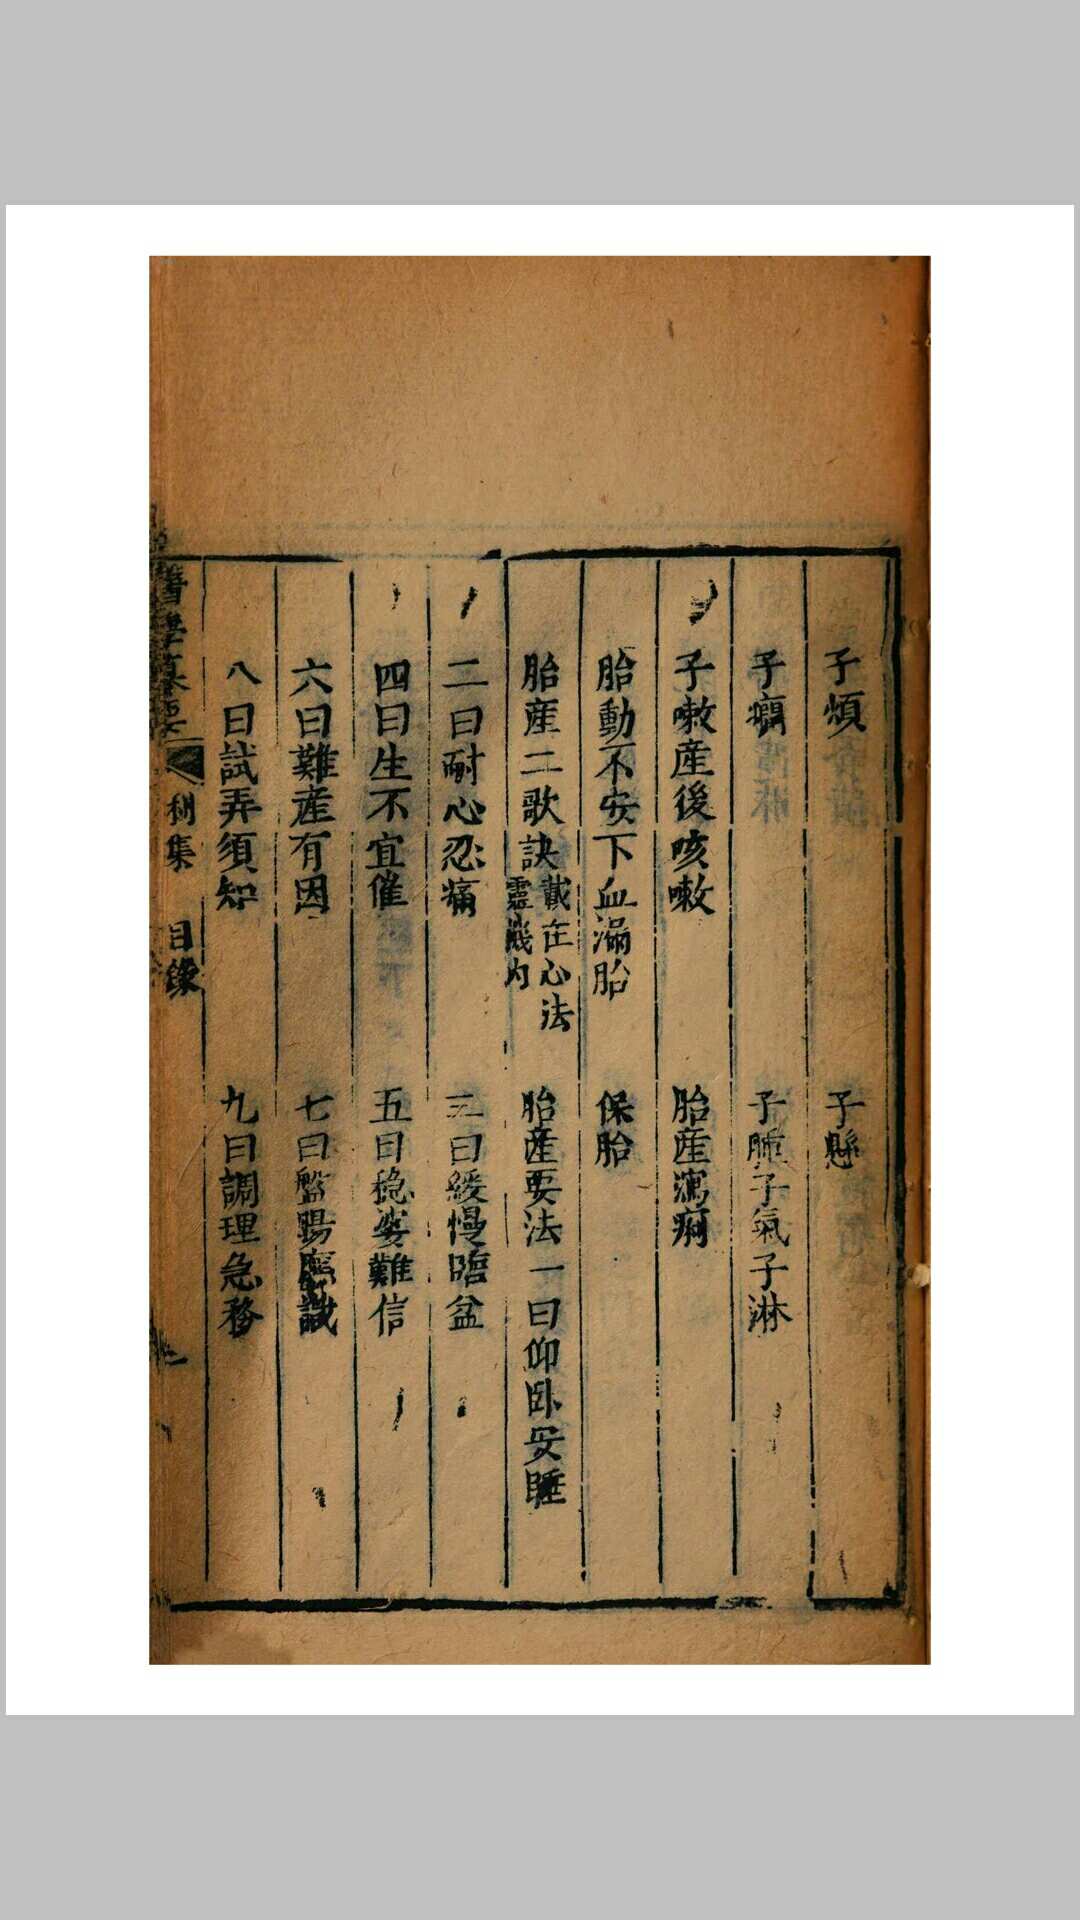 子煩　子懸
子癇　子腫子氣子淋
子嗽產後咳嗽　胎產瀉痢
胎動不安下血漏胎　保胎
胎產二歌訣載在心法靈機內　胎產要法一曰仰臥安睡
二曰耐心忍痛　三曰緩慢臨盆
四曰生不宜催　五曰穩婆難信
六曰難產有因　七曰盤腸應識
八曰試弄須知　九曰調理急務
醫學集要　利集　目錄